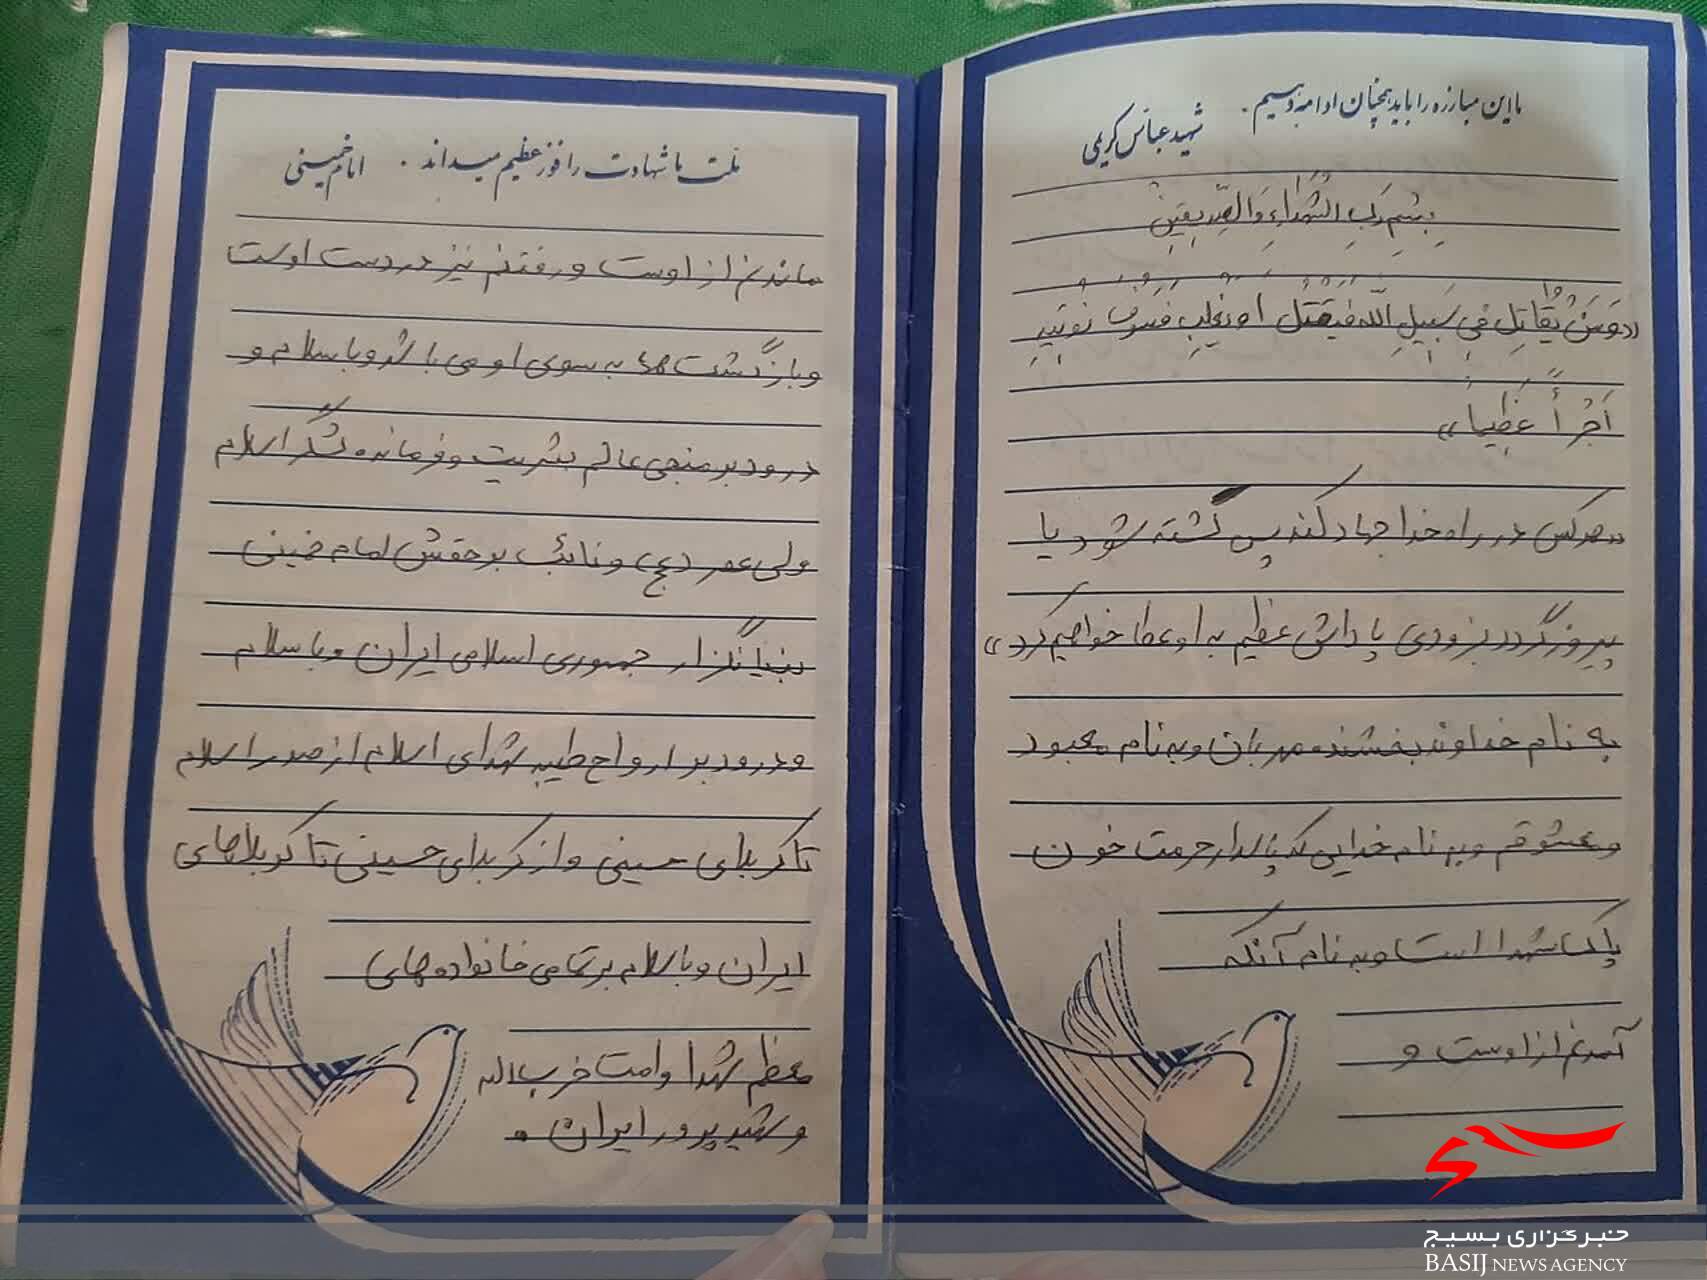 ما این مبارزه را باید همچنان ادامه دهیم.
شهید عباس کریمی
بِسْمِ رَبِ الشُهَداءِ وَالصِدیقینْ
((وَمَنْ یُقاتِلْ فی سَبیلِ اللّه فَیُقْتَلْ اَوْ یَغْلِبْ فَسَوْفَ نُوْتیِهِ
اَجْراً عَظیماً))
((هرکس در راه خدا جهاد کند پس کشته شود یا
پیروز گردد بزودی پاداش عظیم به او عطا خواهیم کرد))
به نام خداوند بخشنده مهربان و به نام معبود
و عشوقم و به نام خدایی که پاسدار حرمت خون
پاک شهدا است و به نام آنکه
آمدنم از اوست و
ملت ما شهادت را فوز عظیم میداند. امام خمینی
ماندنم از اوست و رفتنم نیز در دست اوست
و بازگشت ما به سوی او می باشد و با سلام و
درود بر منجی عالم بشریت و فرمانده لشگر اسلام
ولی عصر (عج) و نائب بر حقش امام خمینی
بنیانگزار جمهوری اسلامی ایران و با سلام
و درود بر ارواح طیبه شهدای اسلام از صدر اسلام
تا کربلای حسینی و از کربلای حسینی تا کربلاهای
ایران و با سلام بر تمامی خانواده های
معظم شهدا و امت حزب الله
و شهید پرور ایران.
خبرگزاری بسیج
BASIJ NEWS AGENCY